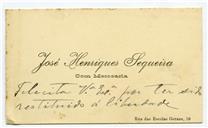 José Henriques Sequeira
Com Mercearia
Felicita V.ª Ex.ª por ter sido
restituido á liberdade
Rua das Escolas Geraes, 19